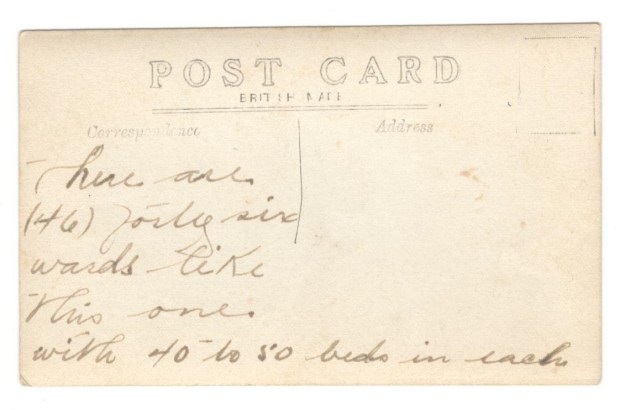 POST CARD
BRITISH MADE
Correspondence
Address
There are
(46) forty six
wards like
this one.
with 40 to 50 beds in each